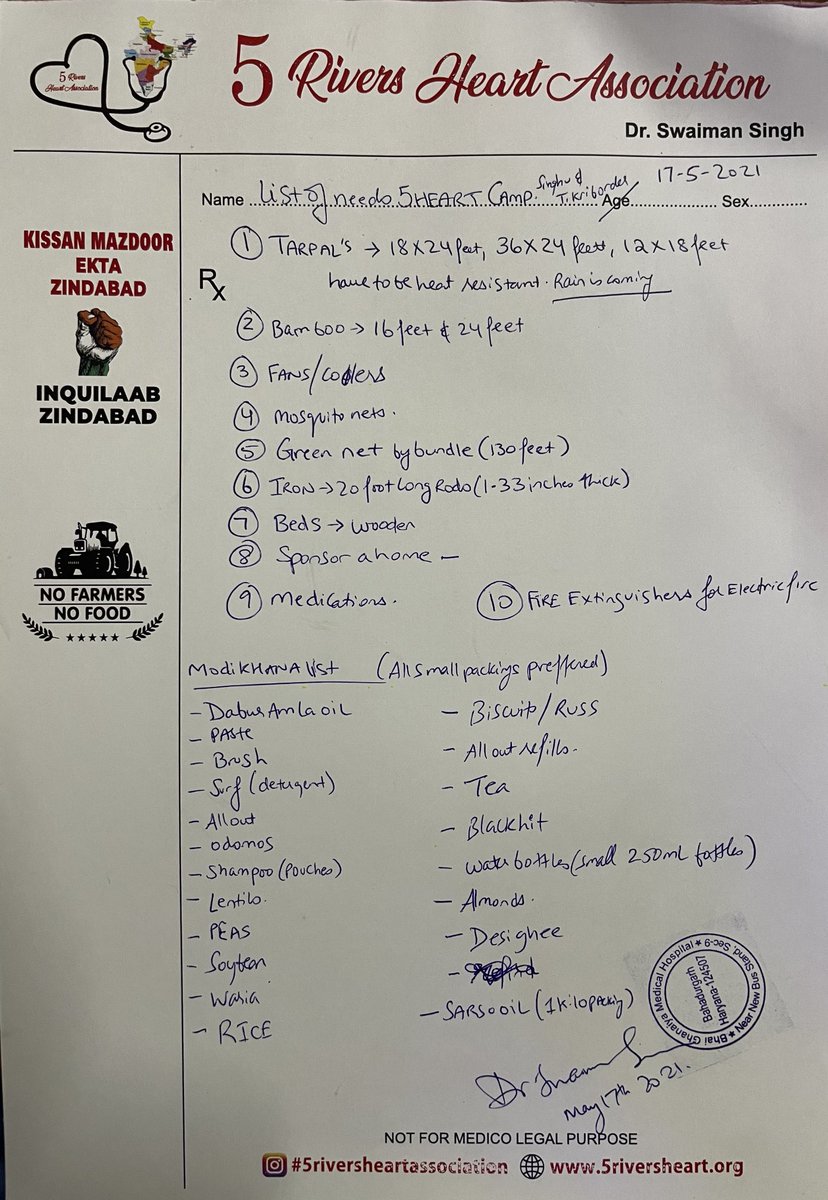 5 Rivers
Heart Association
5 Rivers Heart Association
Dr. Swaiman Singh
17-5-2021
Name List of needs 5 HEART CAMP. Singhu & Tikri border Age Sex
KISSAN MAZDOOR
EKTA
ZINDABAD
INQUILAAB
ZINDABAD
NO FARMERS
NO FOOD
Rx
1 TARPAL'S → 18X24 feet, 36X24 feet, 12X18 feet
have to be heat resistant. Rain is coming
2 Bamboo → 16 feet & 24 feet
3 FANS/coolers
4 Mosquito nets.
5 Green net by bundle (130 feet)
6 IRON → 20 foot Long Rods (1-33 inches thick)
7 Beds → wooden
8 Sponsor a home –
9 Medications.
10 FIRE Extinguishers for Electric fire
Modi KHANA list (All small packings preffered)
– Dabur Amla oil
– PAste
– Brush
– Surf (detergent)
– All out
– odomos
– Shampoo (Pouches)
– Lentils.
– PEAS
– Soybean
– Waria
– RICE
– Biscuits/RUSS
– All out refills.
– Tea
– Blackhit
– water bottles (small 250mL bottles)
– Almonds.
– Desighee
– SARSO OIL (1 kilo packing)
Bhai Ghanaiya Medical Hospital ★ Near New Bus Stand, Sec-9 ★
Bahadurgarh
Haryana-124507
Dr Swaiman S
May 17th 2021.
NOT FOR MEDICO LEGAL PURPOSE
#5riversheartassociation www.5riversheart.org